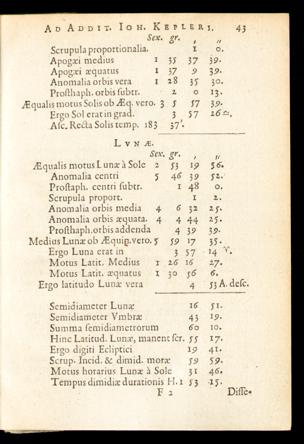 AD ADDIT. IOH. KEPLERI. 43
Sex. gr. , „
Scrupula proportionalia. 1 0.
Apogæi medius 1 35 37 39.
Apogæi æquatus 1 37 9 39.
Anomalia orbis vera 1 28 35 30.
Prosthaph. orbis subtr. 2 0 13.
Æqualis motus Solis ob Æq. vero. 3 5 57 39.
Ergo Sol erat in grad. 3 57 26 ♎.
Asc. Recta Solis temp. 183 37'.
LVNÆ.
Sex. gr. , „
Æqualis motus Lunæ à Sole 2 53 19 56.
Anomalia centri 5 46 39 52.
Prostaph. centri subtr. 1 48 0.
Scrupula proport. 1 2.
Anomalia orbis media 4 6 32 25.
Anomalia orbis æquata. 4 4 44 25.
Prosthaph. orbis addenda 4 39 39.
Medius Lunæ ob Æquin. vero. 5 59 17 35.
Ergo Luna erat in 3 57 14 ♈.
Motus Latit. Medius 1 26 16 27.
Motus Latit. æquatus 1 30 56 6.
Ergo latitudo Lunæ vera 4 53 A. desc.
Semidiameter Lunæ 16 51.
Semidiameter Vmbræ 43 19.
Summa semidiametrorum 60 10.
Hinc Latitud. Lunæ, manent scr. 55 17.
Ergo digiti Ecliptici 19 41.
Scrup. Incid. & dimid. moræ 59 59.
Motus horarius Lunæ à Sole 31 46.
Tempus dimidiæ durationis H. 1 53 15.
F 2 Disse-